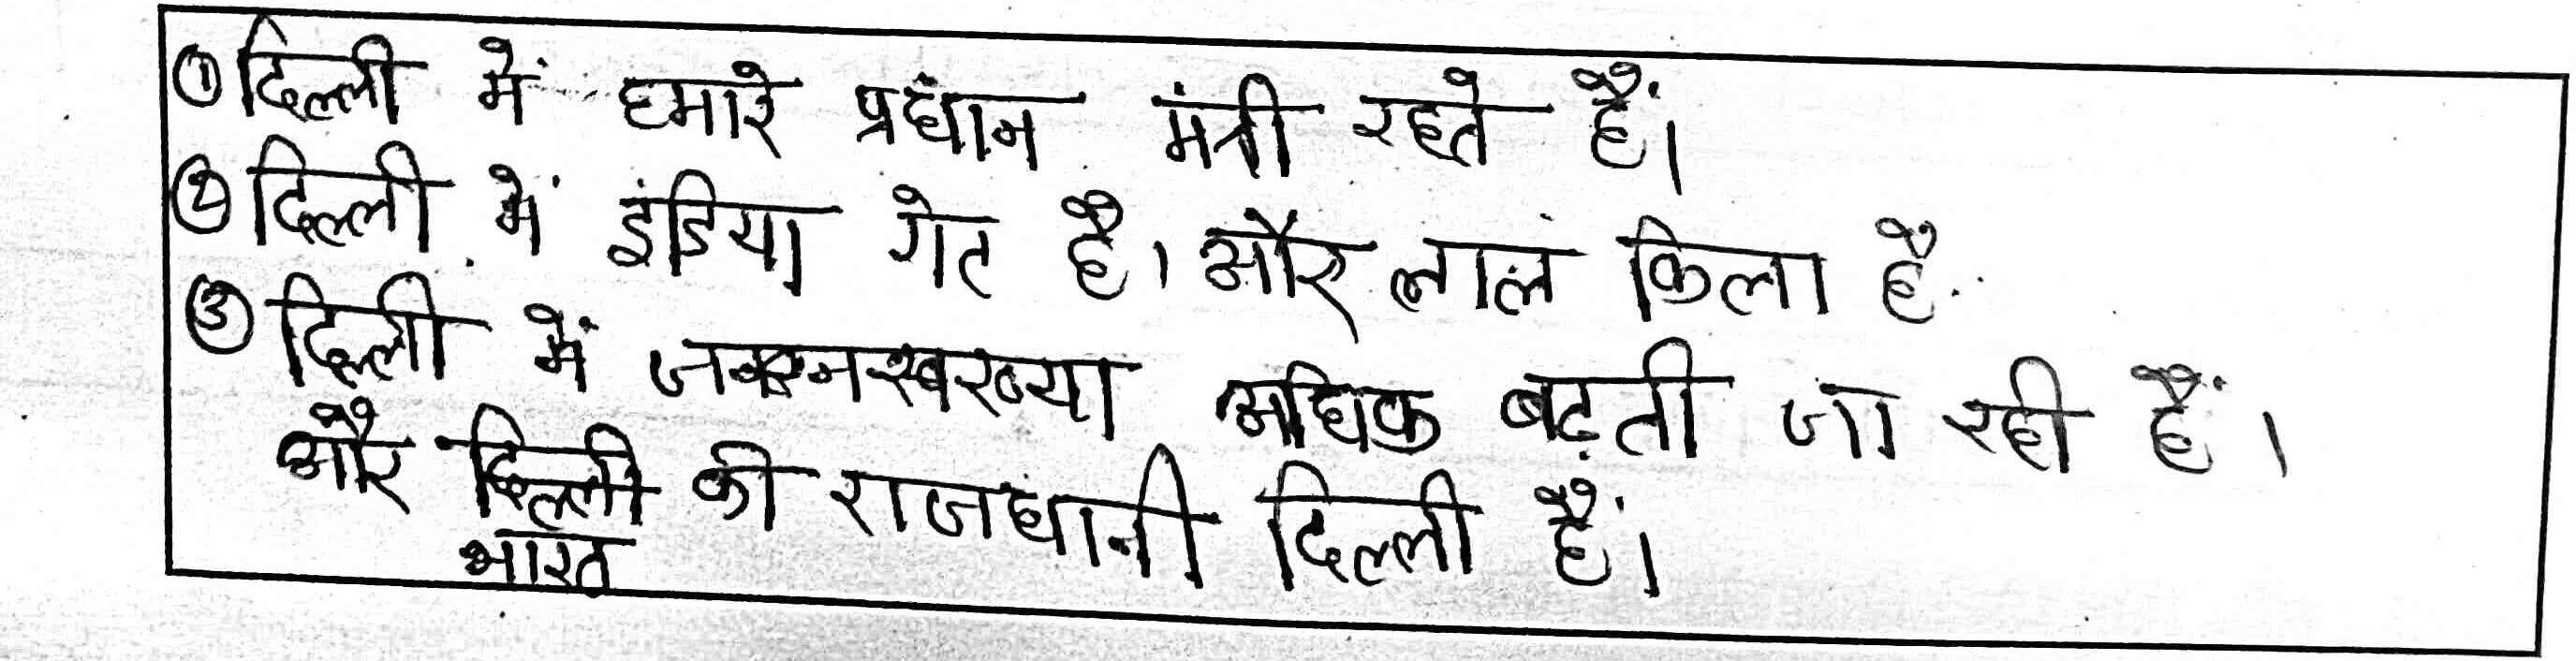 ① दिल्ली में हमारे प्रधान मंत्री रहते हैं।
② दिल्ली में इंडिया गेट है। और लाल किला है
③ दिल्ली में अधिक बढ़ती जा रही हैं।
और दिल्ली की राजधानी दिल्ली हैं।
भारत